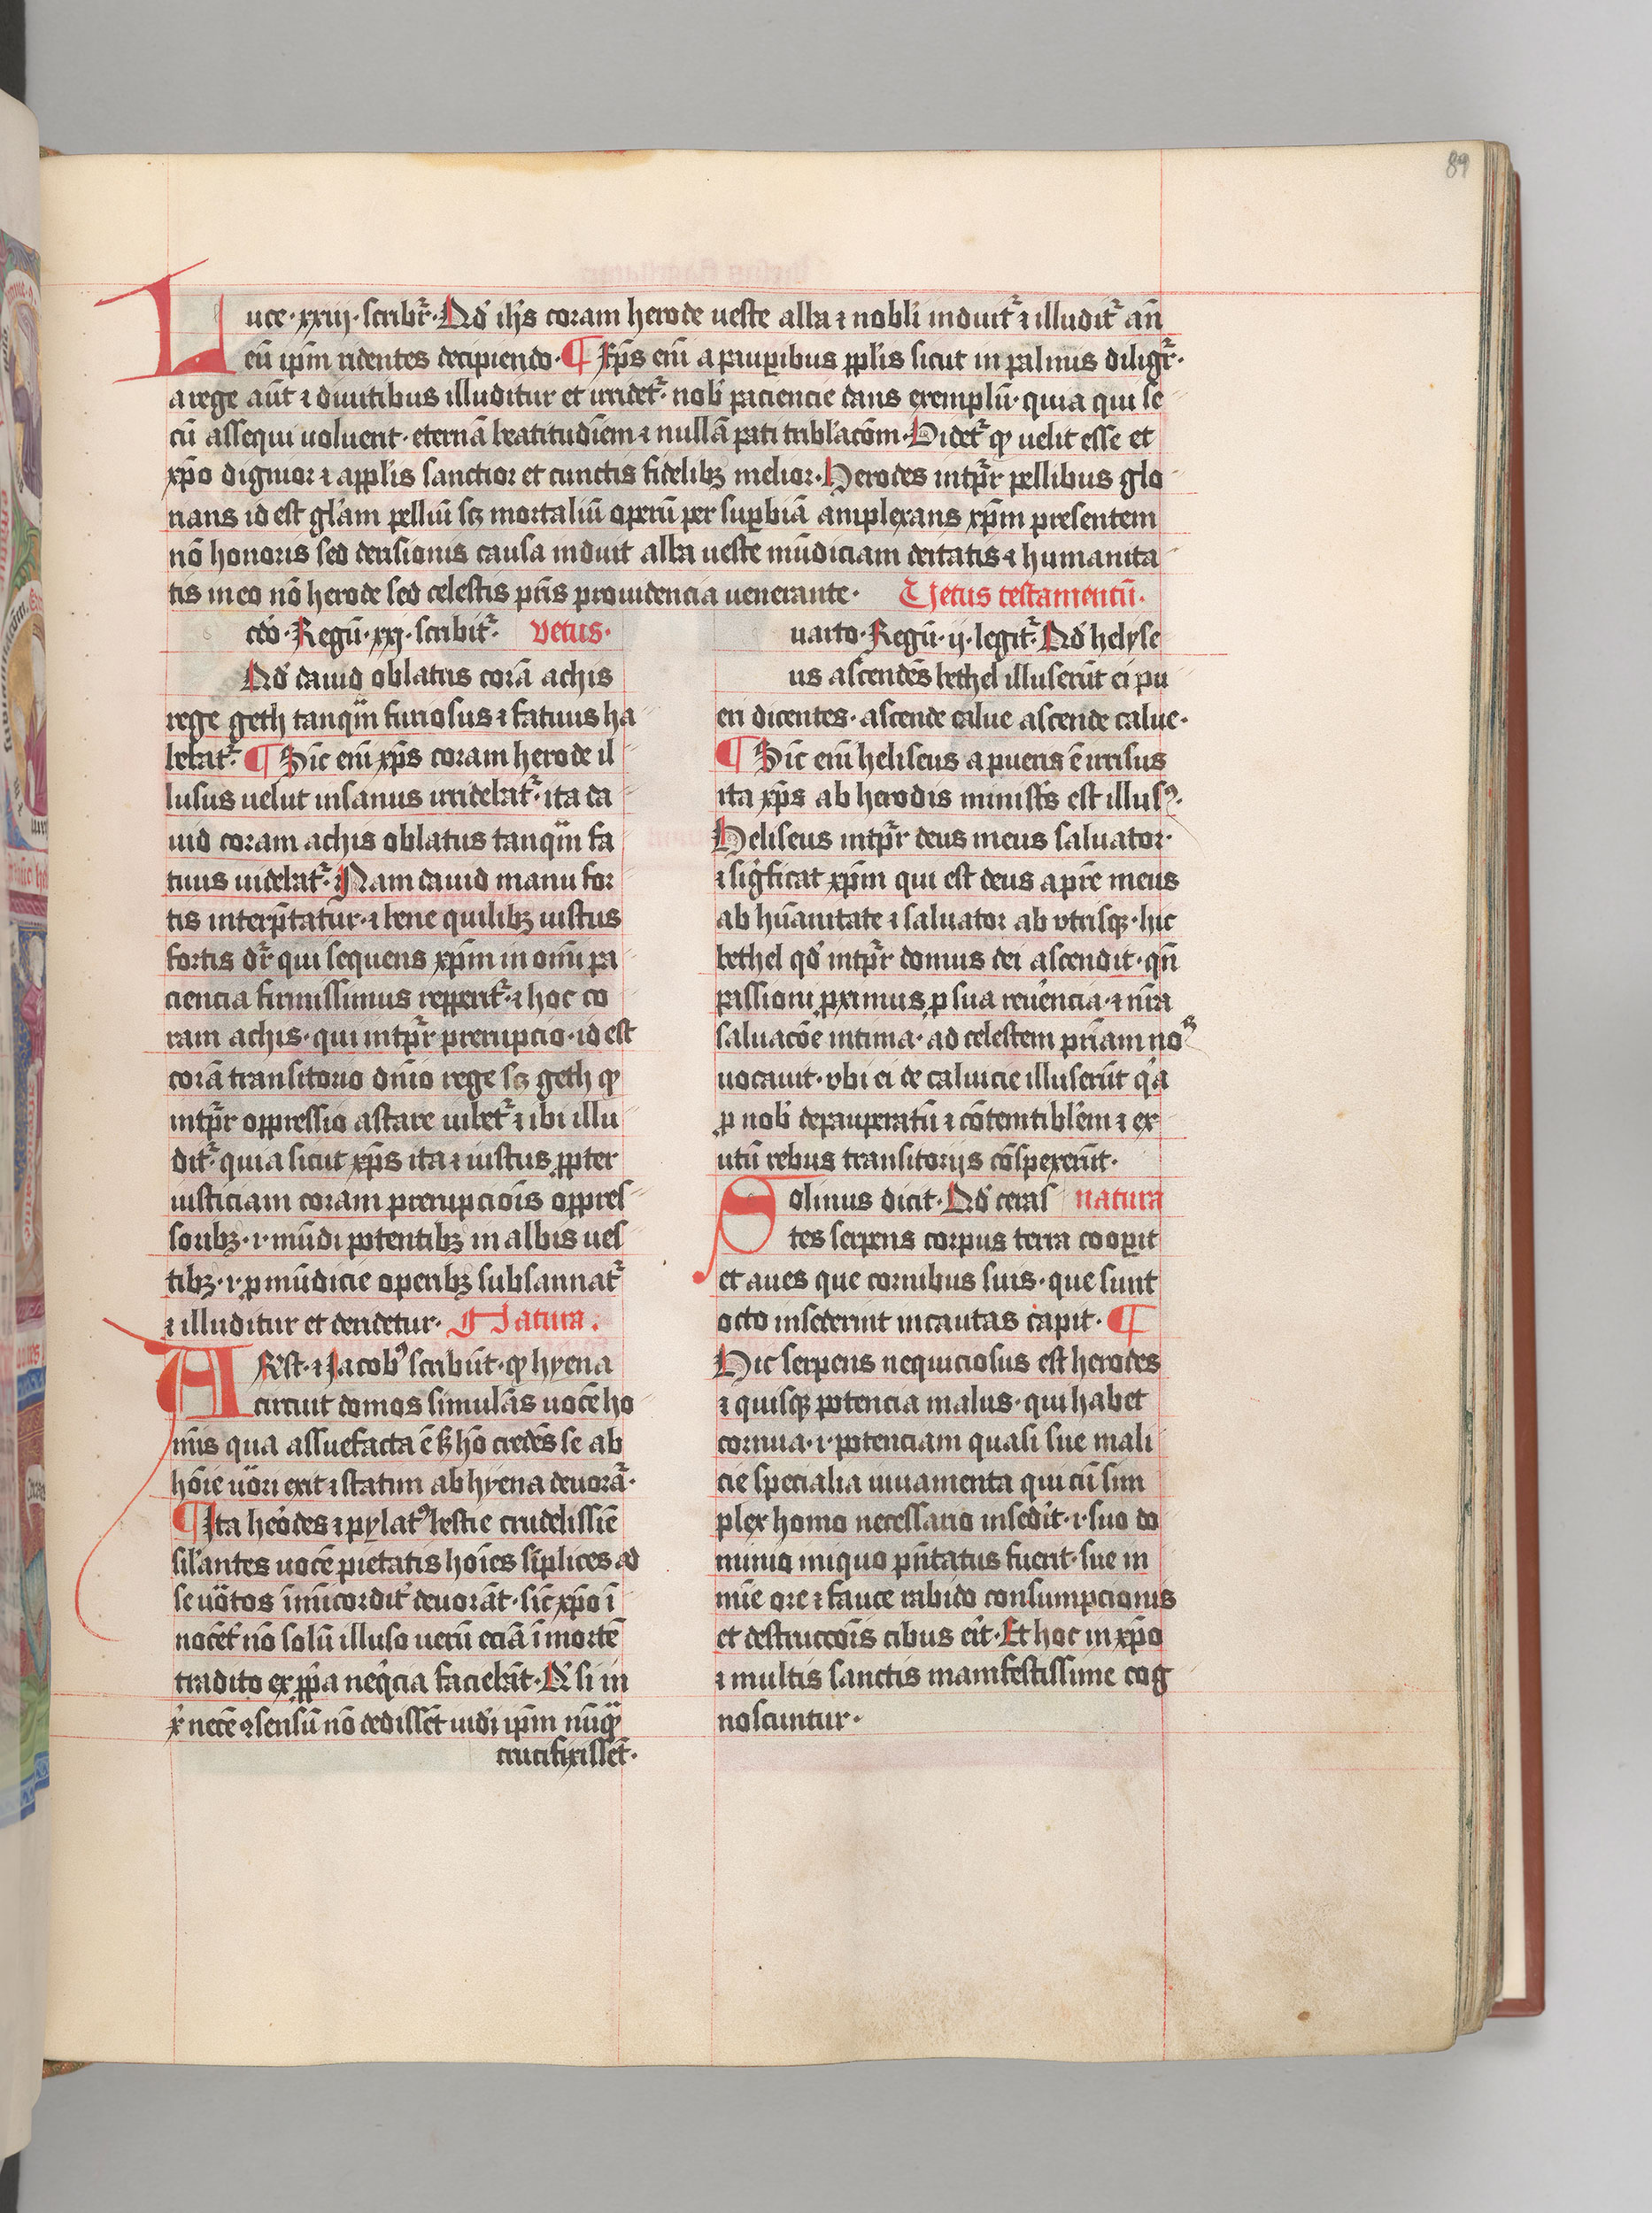 89
Luce · xxiij · scribr̄ · Qd̄ ih̄s coram herode ueste alba ⁊ nobli induit̄ ⁊ illudit̄ an̄
eū ip̄m ridentes decipiendo · ¶ Xp̄s eni a paupibus pplis sicut in palmis diligr̄ ·
a rege aūt ⁊ diuitibus illuditur et irridet̄ · nob̄ paciencie dans exemplū · quia qui se
cū assequi uoluerit · eternā beatitudīem ⁊ nullā pati tribl̄acōm · Videt̄ ꝙ uelit esse et
xp̄o dignior ⁊ applis sanctior et cunctis fidelibꝫ melior · Herodes intp̄r pellibus glo
rians id est gl̄am pelliū sꝫ mortaliū operū per supbiā amplexans xp̄m presentem
nō honoris sed derisionis causa induit alba ueste mūdiciam deitatis ⁊ humanita
tis in eo nō herode sed celestis pr̄is prouidencia uenerante · Vetus testamentū ·
cdō · Regū · xxj · scribit̄ · vetus ·
Qd̄ dauid oblatus corā achis
rege geth tanqm̄ furiosus ⁊ fatuus ha
bebat̄ · ¶ Sic eni xp̄s coram herode il
lusus uelut insanus irridebat̄ · ita da
uid coram achis oblatus tanqm̄ fa
tuus uidebat̄ · Nam dauid manu for
tis interp̄tatur · ⁊ bene quilibꝫ iustus
fortis dr̄ qui sequens xp̄m in omī pa
ciencia firmissimus repperit̄ · ⁊ hoc co
ram achis · qui intp̄r prerupcio · id est
corā transitorio dn̄io rege sꝫ geth ꝙ
intp̄r oppressio astare uidet̄ ⁊ ibi illu
dit̄ · quia sicut xp̄s ita ⁊ iustus ꝓpter
iusticiam coram prerupciois oppres
soribꝫ · i · mūdi potentibꝫ in albis ues
tibꝫ · i · ꝓ mūdicie operibꝫ subsannat̄
⁊ illuditur et deridetur · Natura .
Arest · ⁊ Jacobꝰ scribūt · ꝙ hyena
circuit domos simulās uocē ho
mīs qua assuefacta ē hō credēs se ab
hōie uōri exit ⁊ statim ab hyena deuorā ·
¶ Ita heōdes ⁊ pylatꝰ bestie crudelissīe
sil̄antes uocē pietatis hōies sīplices ad
se uōtos īmīcordit̄ deuorāt · sic xp̄o ī
nocēt̄ nō solū illuso uerū eciā ī mortē
tradito ex ꝓpa neq̄cia faciebāt · si in
nece ꝯsensū nō dedissēt iudei ip̄m nūqꝙ
crucifixissēt ·
uarto · Regū · ij · legit̄ · Qd̄ helyse
us ascendēs bethel illuserūt ei pu
eri dicentes · ascende calue ascende calue ·
¶ Sic eni heliseus a pueris ē irrisus
ita xp̄s ab herodis ministris est illusꝰ ·
Heliseus intp̄r deus meus saluator ·
⁊ sigficat xp̄m qui est deus a pr̄e meus
ab hūanitate ⁊ saluator ab vtrisqꝫ · hic
bethel qd̄ intp̄r domus dei ascendit · qn̄
passioni ꝓximus ꝓ sua reuēncia · ⁊ nr̄a
saluacōe intima · ad celestem pr̄iam no
uocauit · vbi ei de caluicie illuserūt q̄a
ꝓ nob̄ depauperatū ⁊ cōtemtiblem ⁊ ex
utū rebus transitorijs cōspexerūt ·
Solinus dicit · Qd̄ ceras natura
tes serpens corpus terra coopit
et aues que cornibus suis · que sunt
octo insederint incautas capit · ¶
Hic serpens nequiciosus est herodes
⁊ quisqꝫ potencia malus · qui habet
cornua · i · potenciam quasi sue mali
cie specialia iuuamenta qui cū sim
plex homo necessario insedīt · i · suo do
minio iniquo pn̄tatus fuerit · sue in
mīe ore ⁊ fauce rabido consumpcionis
et destruccōis cibus eīt · Et hoc in xp̄o
⁊ multis sanctis manifestissime cog
noscuntur ·